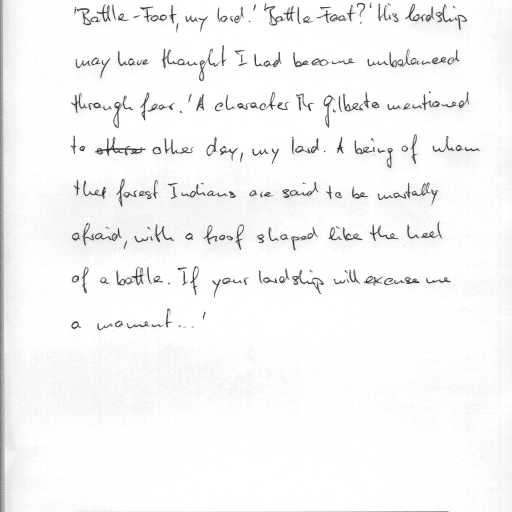 'Bottle-Foot, my lord.' 'Bottle-Foot?' His lordship
may have thought I had become unbalanced
through fear. 'A character Mr Gilberto mentioned
to other day, my lord. A being of whom
the forest Indians are said to be mortally
afraid, with a hoof shaped like the heel
of a bottle. If your lordship will excuse me
a moment...'